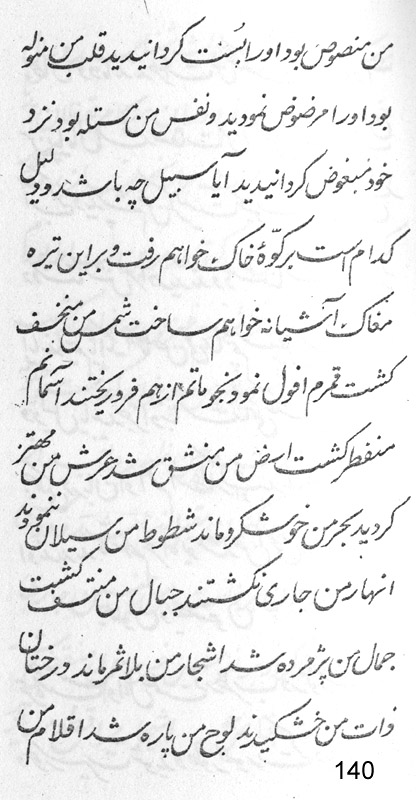 من منصوص بود اورا بست کردانیدید قلب من منوله
بود اورا مرضوض نمودید و نفس من مسئله بود نزد
خود مبغوض کردانیدید آیا سبیل چه باشد و دلیل
کدام است بر کوّهٔ خاک خواهم رفت و بر این تیره
مغاک آشیانه خواهم ساخت شمس من منخسف
کشت قمرم افول نمود نجوماتم از هم فرو ریختند آسمانم
منفطر کشت ارض من منشق شد عرش من مهتز
کردید بحر من خوشکرو ماند شطوط من سیلان ننمودند
انهار من جاری نکشتند جبال من منتسف کشت
جمال من پژمرده شد اشجار من بلا ثمر ماند درختان
ذات من خشکیدند لوح من پاره شد اقلام من
140